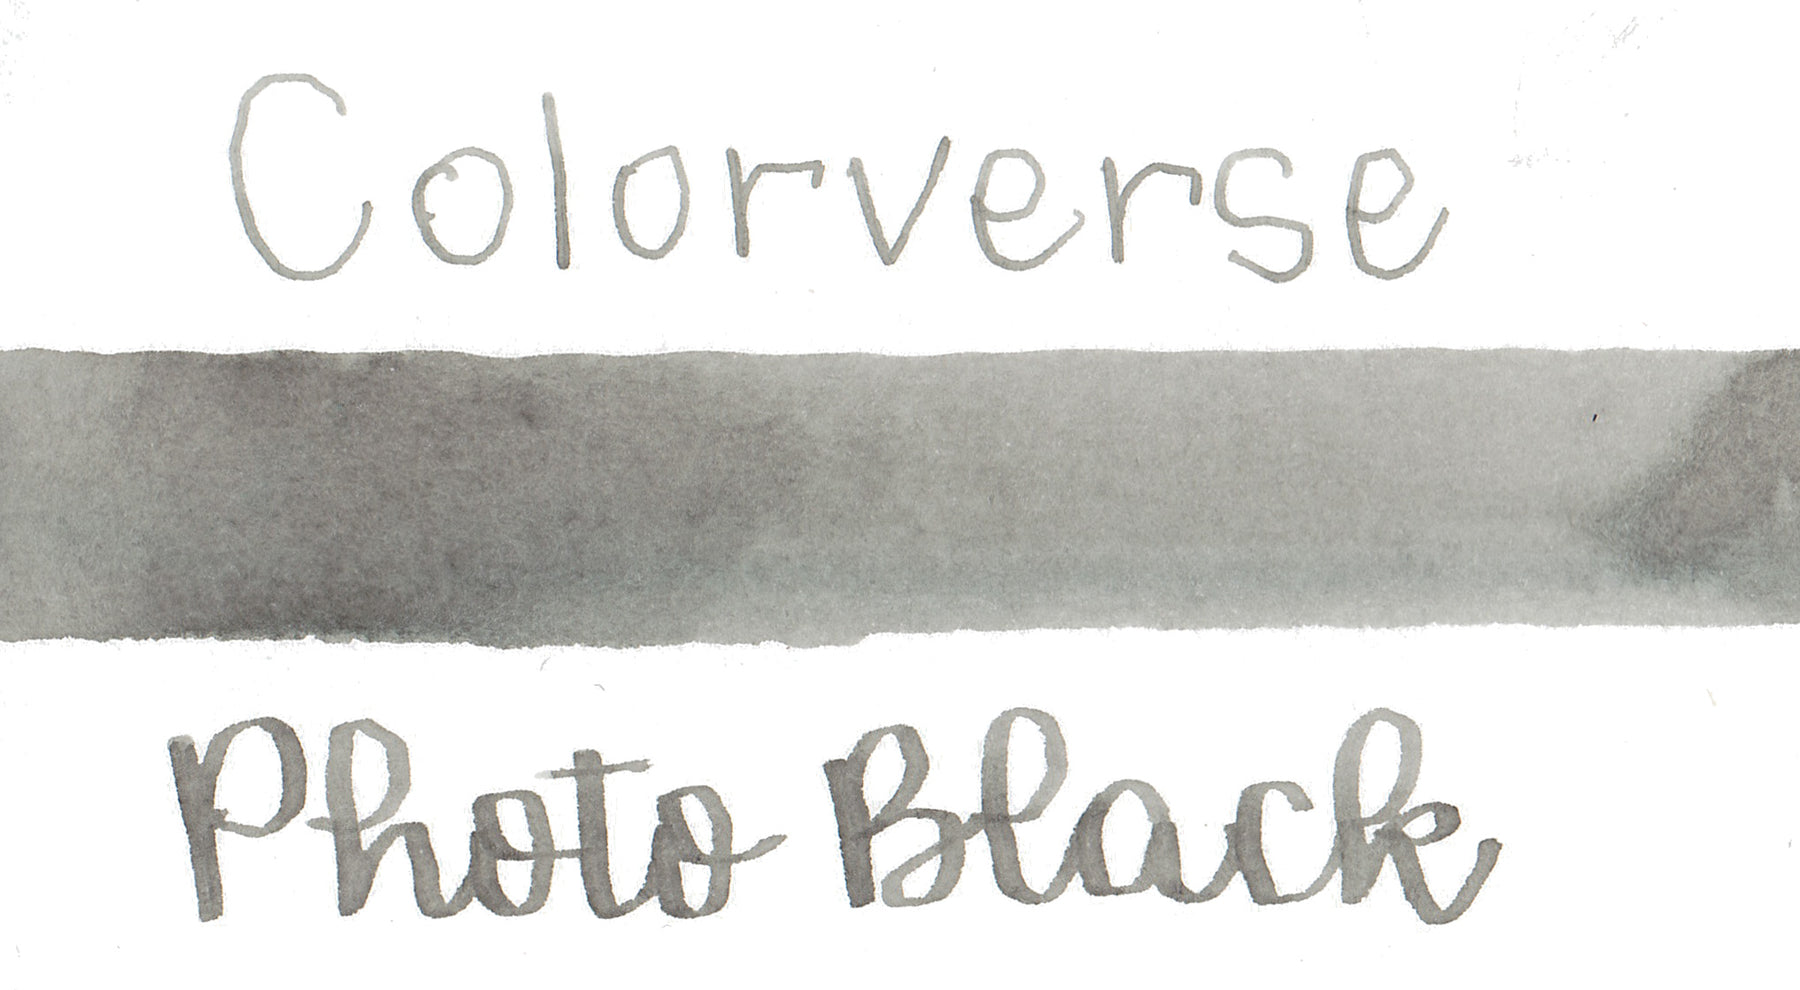 Colorverse
Photo Black